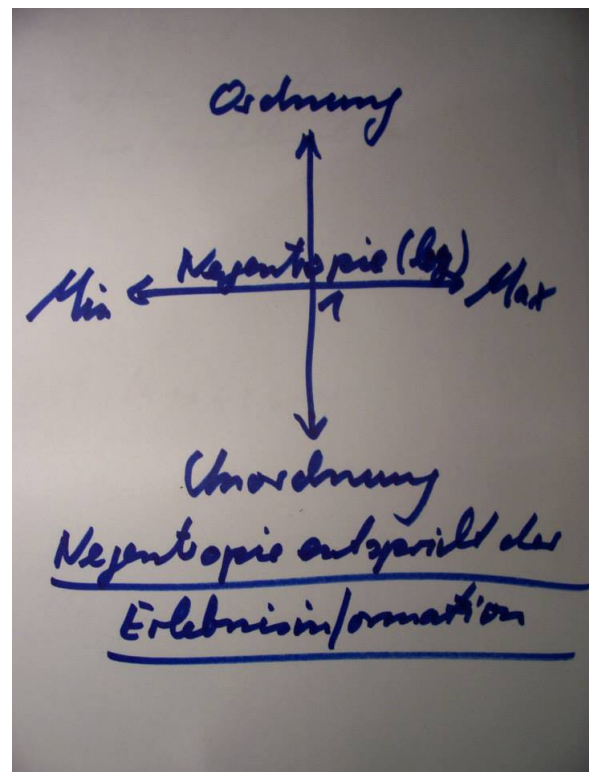 Ordnung
Negentropie (log)
Min Max
1
Unordnung
Negentropie entspricht der
Erlebnisinformation